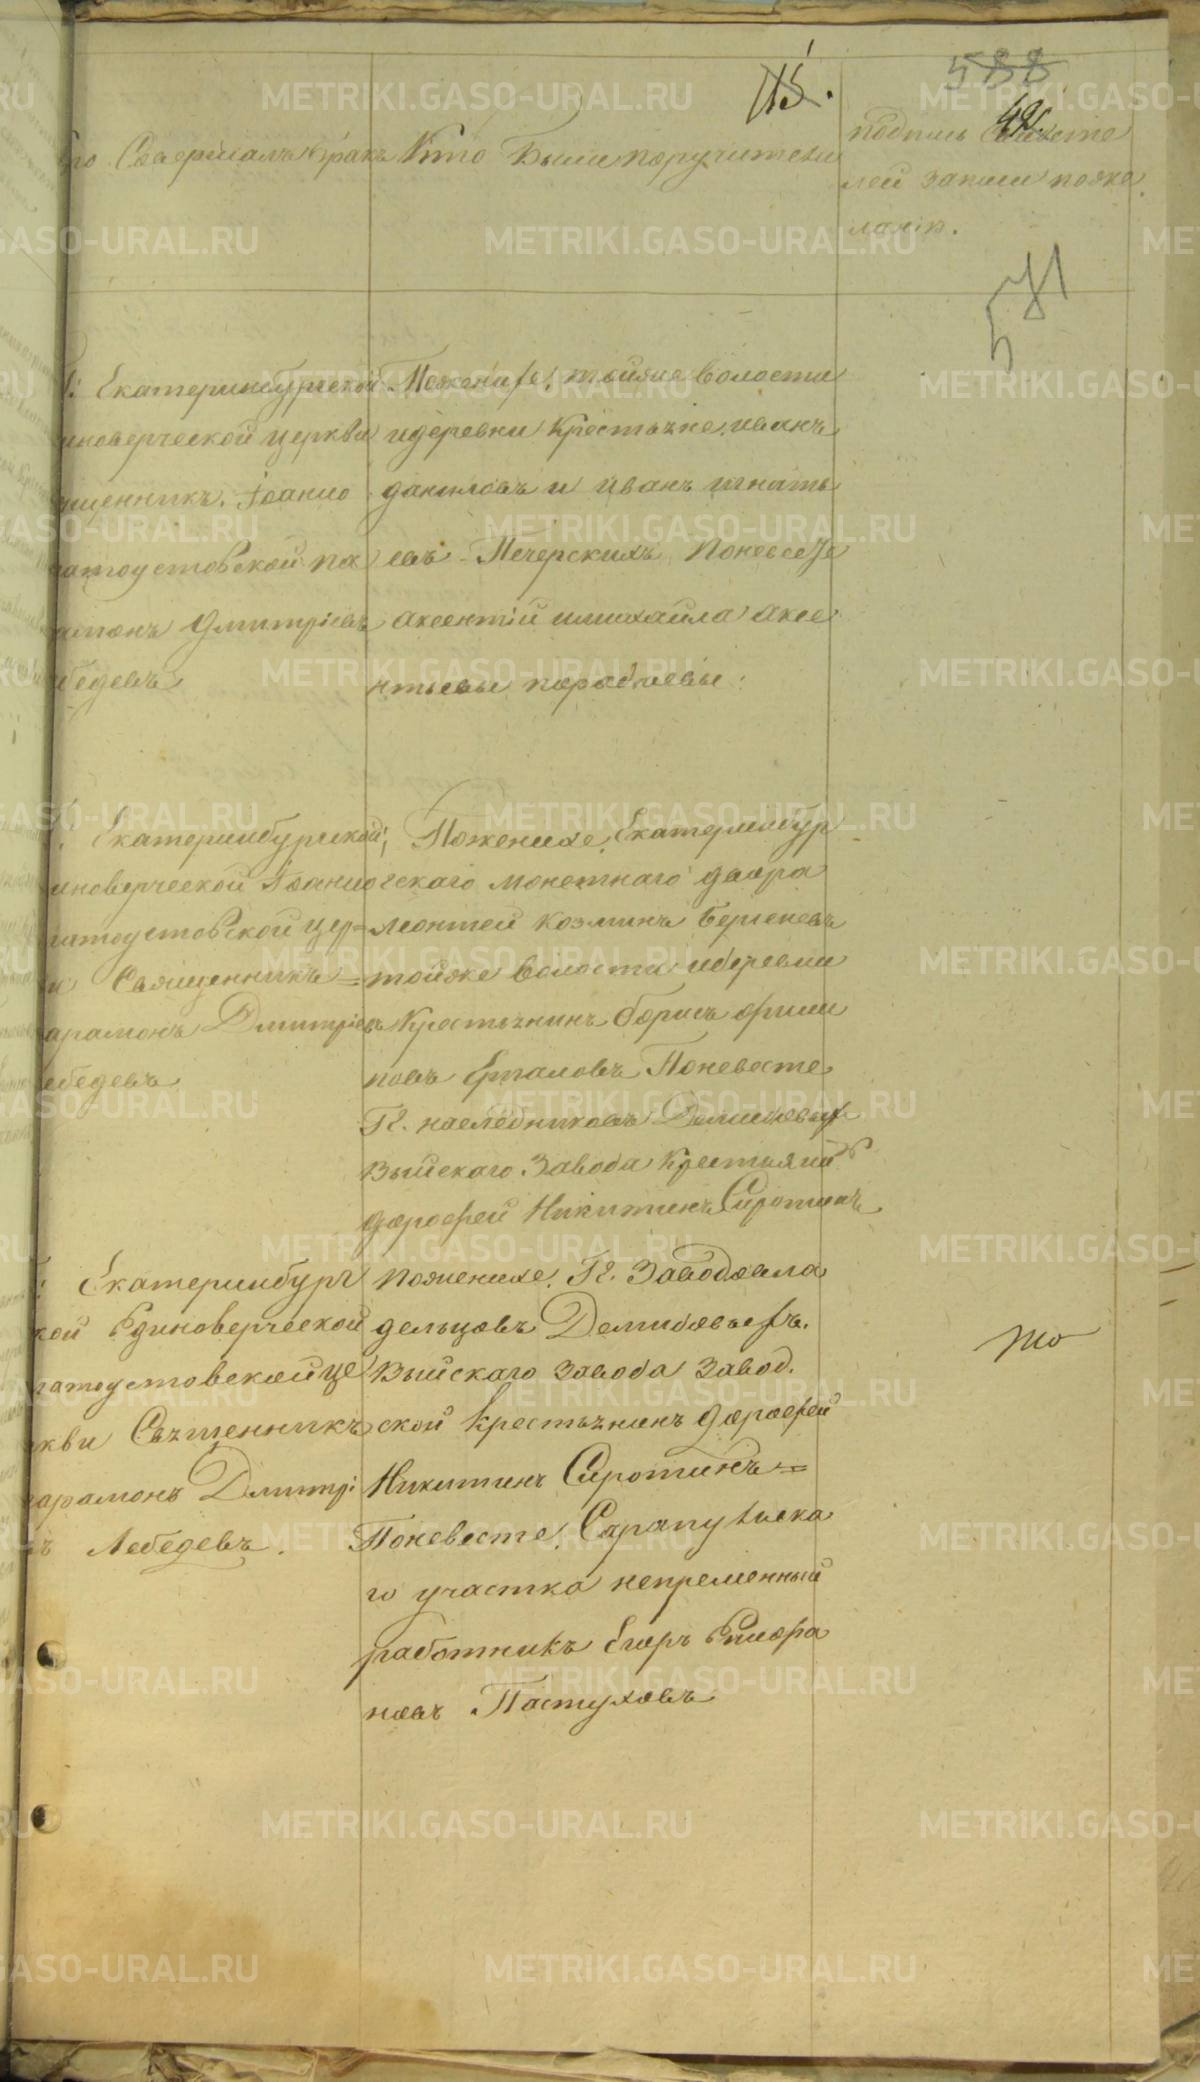 15.
588
подпись свидете
лей записи поже
ланію.
то Совершалъ бракъ
Кто Были поручители
571
Г: Екатеринбургской
иноверческой церкви
щенникъ. Іоанно
латоустовской па
амонъ Дмитріевъ
бедевъ
Поженихе, тойже волости
идеревни Крестьяне, иванъ
даниловъ и иванъ игнать
евъ Печерскихъ Поневесте
Аксентій имихайла аксе
нтьевы
Г: Екатеринбургской
иноверческой Іоанно
латоустовской цер=
и Священникъ=
арамонъ Дмитріевъ
ебедевъ
Поженихе, Екатеринбур
гскаго монетнаго двора
леонтей козминъ
тойже волости идеревни
Крестьянинъ борисъ
новъ Поневесте
Гг. наследниковъ Демидовых
Выйскаго Завода Крестьянинъ
дорофей Никитинъ Сиротинъ
Г: Екатеринбург
кой Единоверческой
латоустовскойце
ркви Священникъ
парамонъ Дмитрі
въ Лебедевъ.
поженихе. Гг. Заводовла
дельцовъ Демидовыхъ.
Выйскаго Завода Завод.
ской крестьянинъ дорофей
Никитинъ Сиротинъ=
Поневесте, Сарапульска
го участка непременный
работникъ Егоръ
новъ Пастуховъ
METRIKI.GASO-URAL.RU